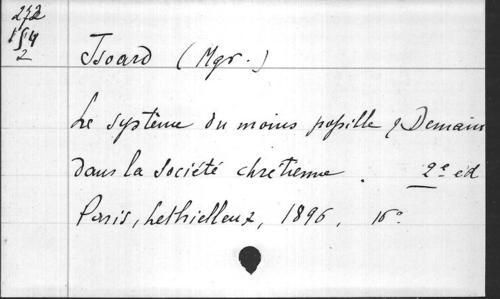 272
154
2
Isoard (Mgr.)
Le système du moins possible & Demain
dans la société chrétienne. 2e éd
Paris, Lethielleux, 1896, 16°